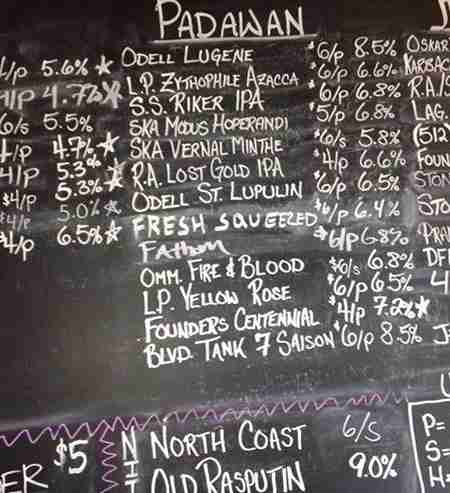 PADAWAN
/P 5.6% ★
/P 4.7% ★
6/S 5.5%
/P 4.7% ★
4/P 5.3% ★
$4/P 5.3% ★
$4/P 5.0% ★
$4/P 6.5% ★
ODELL LUGENE $6/P 8.5%
L.P. ZYTHOPHILE AZACCA 6/P 6.6%
S.S. RIKER IPA $6/P 6.8%
SKA MODUS HOPERANDI 5/P 6.8%
SKA VERNAL MINTHE $6/S 5.8%
R.A. LOST GOLD IPA $4/P 6.6%
ODELL ST. LUPULIN $6/P 6.5%
FRESH SQUEEZED $6/P 6.4%
FATHOM $6/P 6.8%
OMM. FIRE & BLOOD $6/S 6.8%
L.P. YELLOW ROSE $6/P 6.5%
FOUNDERS CENTENNIAL $4/P 7.2% ★
BLVD. TANK 7 SAISON $6/P 8.5%
OSKAR
KARBAC
R.A./S
LAG.
(512)
FOUN
STON
STO
PRAI
DF
4
J
ER $5
NORTH COAST 6/S
OLD RASPUTIN 9.0%
P=
S=
H=